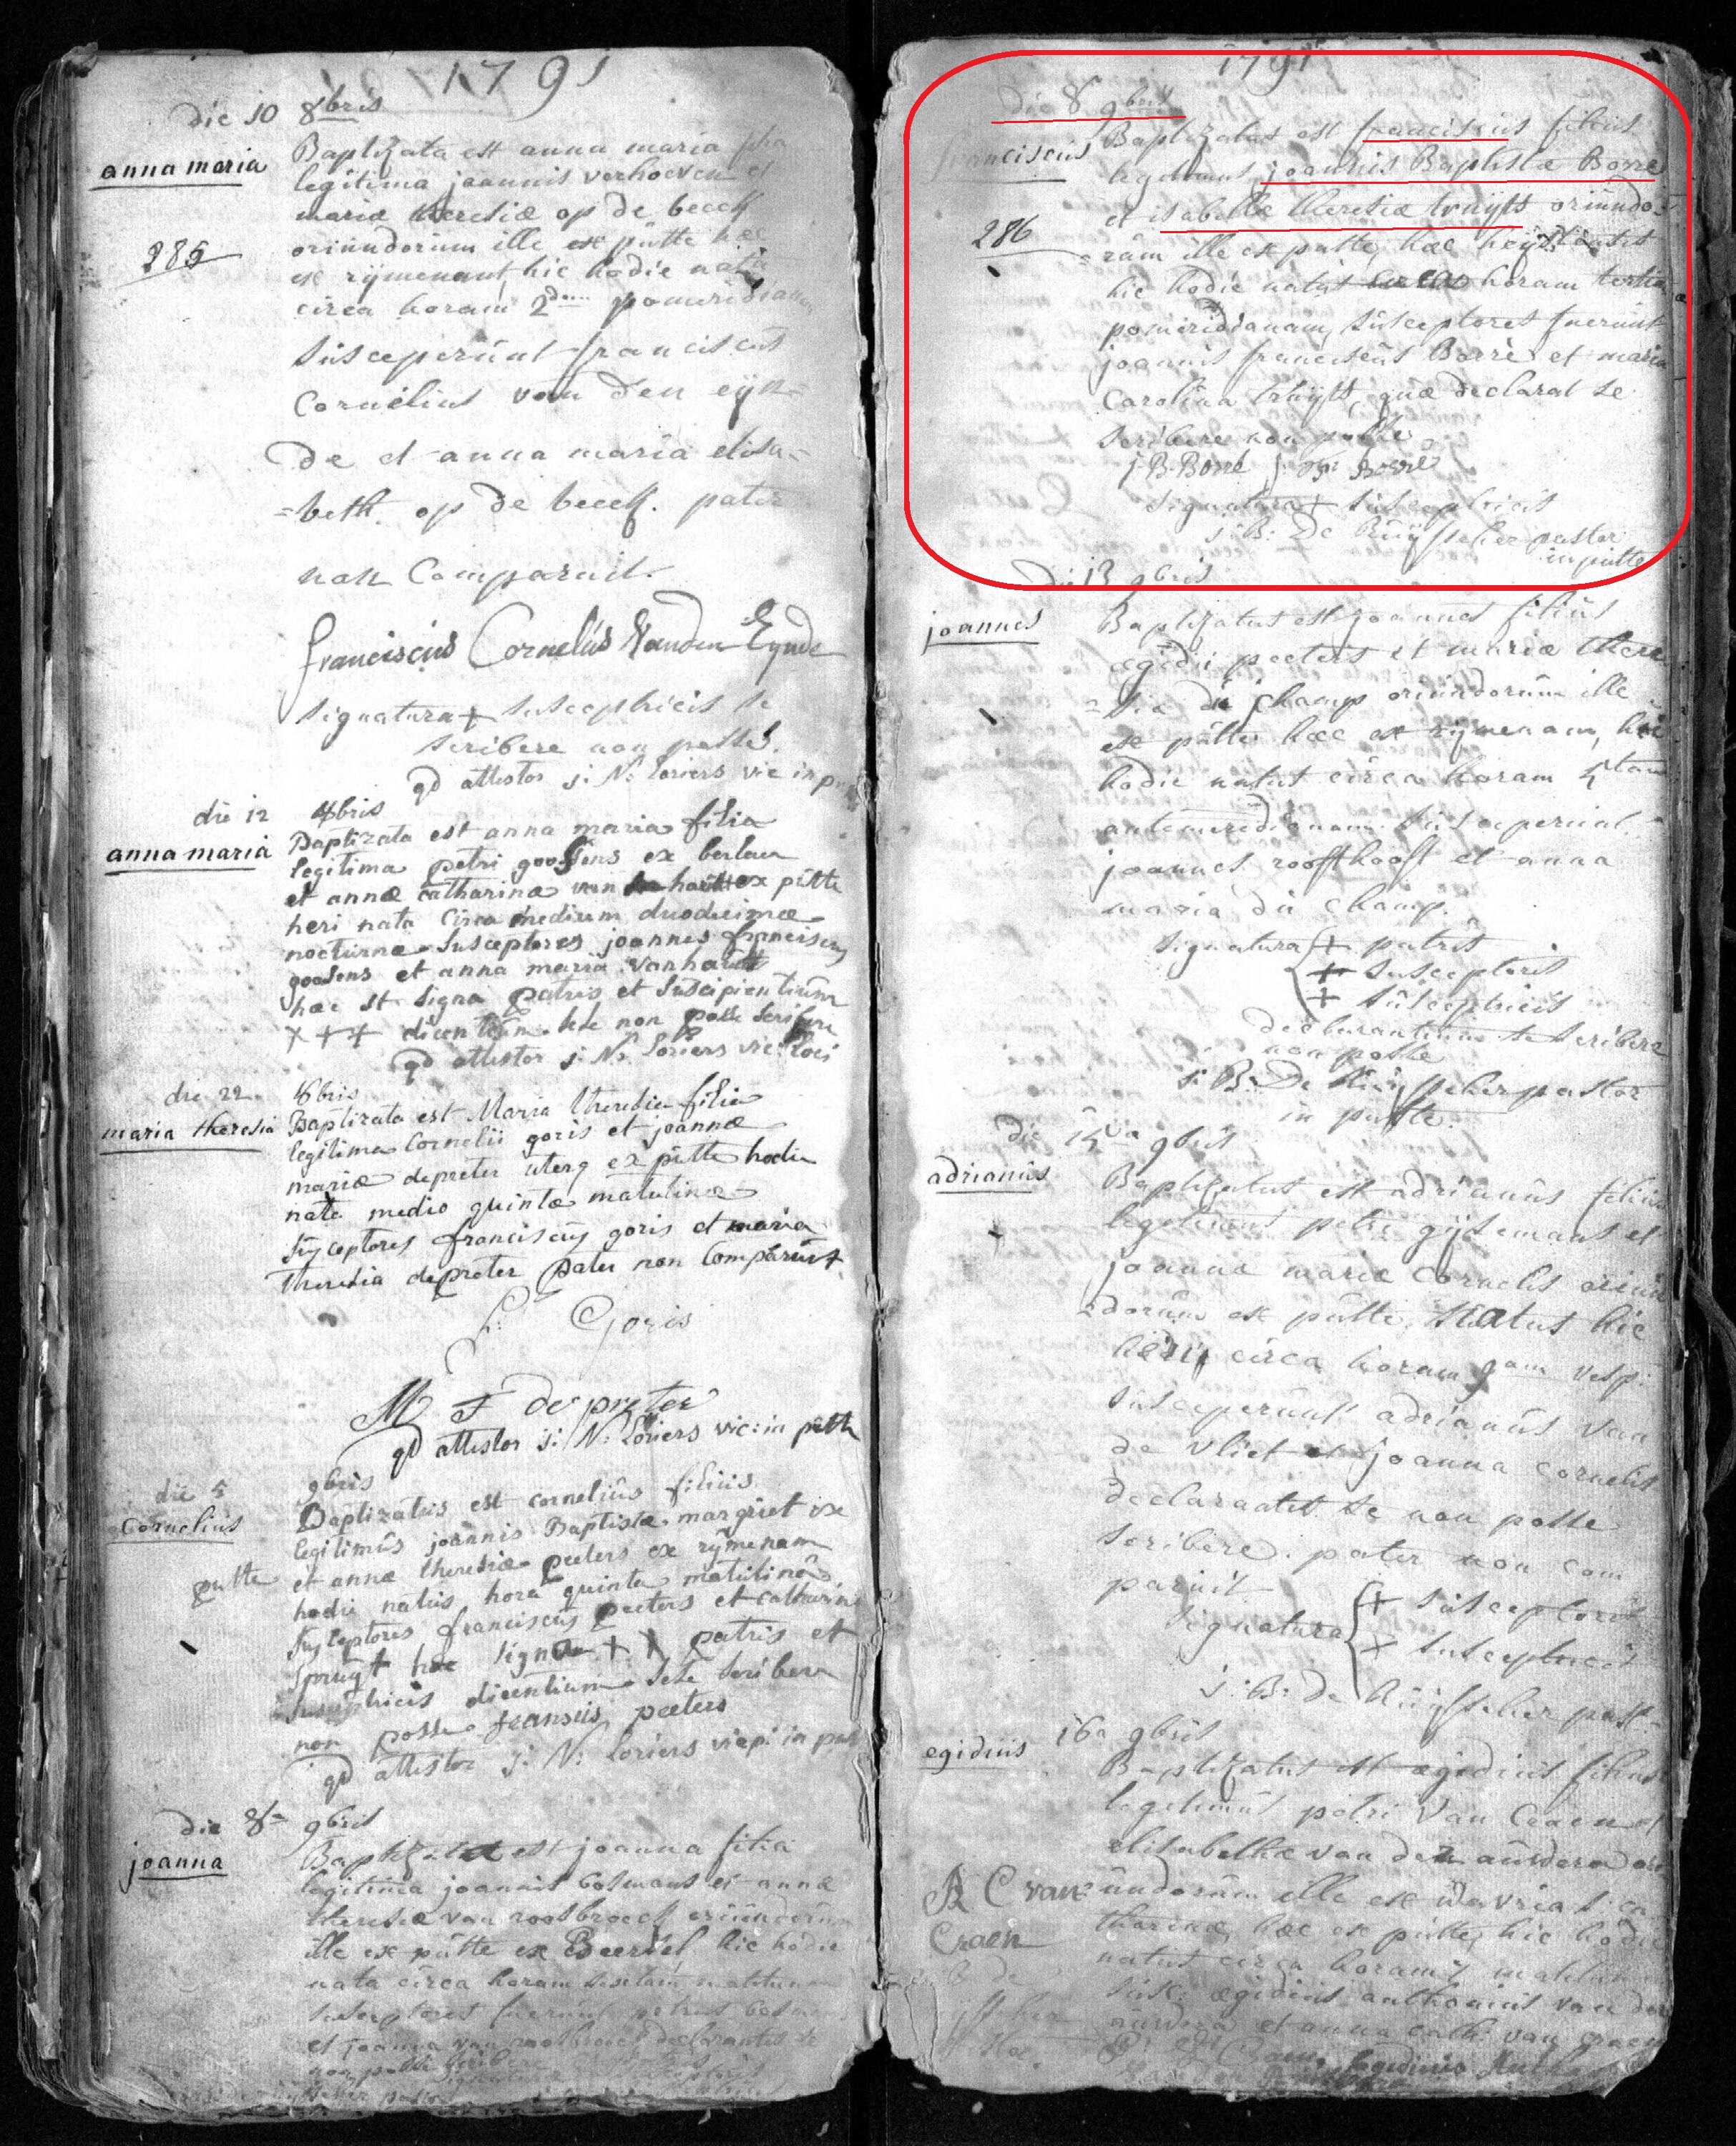 1791
die 10 8bris
anna maria
285
Baptizata est anna maria filia
legitima joannis verhoeven et
mariæ theresiæ op de beeck
oriundorum ille ex pùtte hæc
ex rijmenant, hic hodie nata
circa horam 2dam pomeridianam
susceperùnt franciscus
Cornelius van den eijn-
de et anna maria elisa-
=beth op de beeck. pater
non Comparuit.
franciscus Cornelius Vanden Eynde
signatura + susceptricis se
scribere non posse.
qd attestor j: N: Loriers vic in
die 12 8bris
anna maria
Baptizata est anna maria filia
legitima petri goossens ex berlaer
et annæ catharinæ van ex pùtte
heri nata circa medium duodecimæ
nocturnæ susceptores joannes franciscus
goosens et anna maria
hæc st signa patris et suscipientium
x + + dicentium sese non posse scribere
qd attestor j: N: Loriers vic: loci
die 22 8bris
maria theresia
Baptizata est Maria theresia filia
legitima Cornelii goris et joannæ
mariæ depreter uterq ex pùtte hodie
nata medio quintæ matutinæ
susceptores franciscus goris et maria
theresia depreter pater non Comparuit
Goris
M T de preter
qd attestor j: N: Loriers vic: in pùtte
die 5 9bris
Cornelius
putte
Baptizatus est cornelius filius
legitimùs joannis Baptistæ margriet ex
et annæ theresiæ peeters ex rijmenam
hodie natus hora quinta matutina
susceptores franciscùs peeters et catharina
spruyt hæc signa + + patris et
susceptricis dicentium sese scribere
non posse fransus peeters
qd attestor j: N: Loriers vicep: in
die 8a 9bris
joanna
Baptizata est joanna filia
legitima joannis bosmans et annæ
theresiæ van roosbroeck oriùndorum
ille ex pùtte ex Beersel hic hodie
nata circa horam sextam
susceptores fuerunt petrus bosmans
et joanna van roosbroeck declarantes se
non posse scribere
1791
die 8 9bris
franciscus
286
Baptizatus est franciscus filius
legitimus joannis Baptistæ Borre
et isabellæ theresiæ truijts oriundo-
=rum ille ex putte, hæc
hic hodie natus circa horam tertiam
pomeridianam, susceptores fuerunt
joannis franciscus Borré et maria
Carolina truijts, quæ declarat se
scribere non posse
J. B. Borré J: fr: Borré
signatura + susceptricis
j: B: De Ruijsscher pastor
in putte
die 13 9bris
joannes
Baptizatus est joannes filius
ægidii peeters et mariæ there
=siæ du champ oriùndorum ille
ex pùtte hæc ex rijmenam, hic
hodie natus circa horam 5tam
antemeridianam. susceperunt
joannes roofthooft et anna
maria dù champ.
signatura + patris
+ susceptoris
+ susceptricis
declarantium se scribere
non posse
j: B: De Ruijsscher pastor
in putte.
die 15a 9bris
adrianùs
Baptizatus est adrianùs filius
legitimus petri gijsemans et
joannæ mariæ Cornelis oriùn
=dorùm ex pùtte. Natus hic
heri circa horam 9am vesp:
susceperùnt adrianùs van
de vliet et joanna cornelis
declarantes se non posse
scribere. pater non com
paruit
signatura + susceptoris
+ susceptricis
j: B: de Ruijsscher past:
16a 9bris
egidius
Baptizatus est ægidius filius
legitimus petri van Craen et
elisabethæ van den auwera ori
ùndorùm ille ex wavria S: ca
tharinæ, hæc ex pùtte, hic hodie
natus circa horam
susc: ægidius anthonius van den
auwera et anna cath: van craen
A C van
Craen